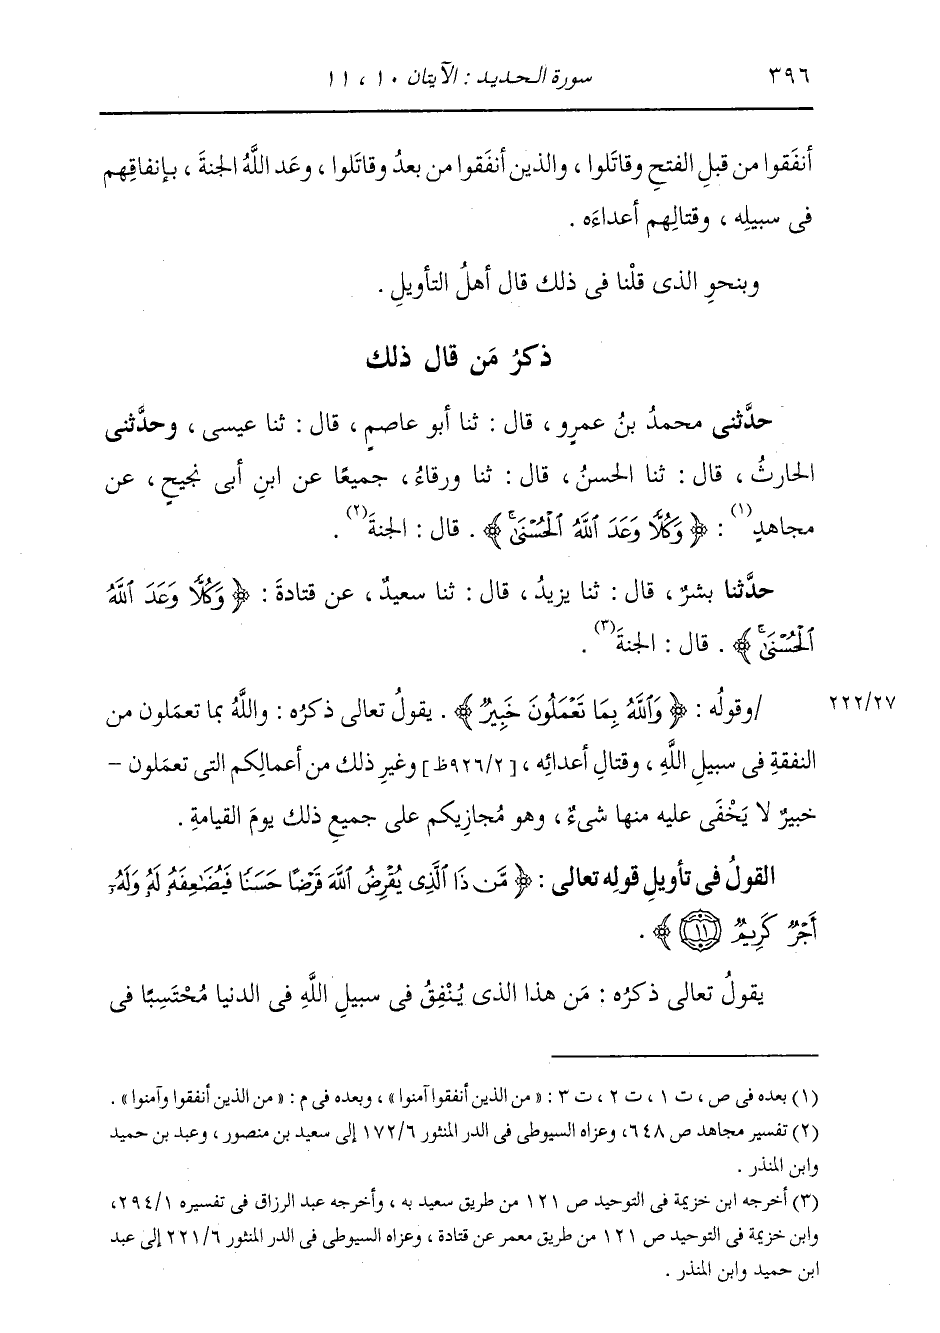 ٣٩٦ سورة الحديد : الآيتان ١٠ ، ١١
أنفَقوا من قبلِ الفتحِ وقاتَلوا ، والذين أنفَقوا من بعدُ وقاتَلوا ، وعَد اللَّهُ الجنةَ ، بإنفاقِهم
فى سبيلِه ، وقتالِهم أعداءَه .
وبنحوِ الذى قلْنا فى ذلك قال أهلُ التأويلِ .
ذكرُ مَن قال ذلك
حدَّثنى محمدُ بنُ عمرٍو ، قال : ثنا أبو عاصمٍ ، قال : ثنا عيسى ، وحدَّثنى
الحارثُ ، قال : ثنا الحسنُ ، قال : ثنا ورقاءُ ، جميعًا عن ابنِ أبى نجيحٍ ، عن
مجاهدٍ(١) : ﴿ وَكُلًّا وَعَدَ ٱللَّهُ ٱلْحُسْنَىٰۚ ﴾ . قال : الجنةَ(٢) .
حدَّثنا بشرٌ ، قال : ثنا يزيدُ ، قال : ثنا سعيدٌ ، عن قتادةَ : ﴿ وَكُلًّا وَعَدَ ٱللَّهُ
ٱلْحُسْنَىٰۚ ﴾ . قال : الجنةَ(٣) .
٢٢٢/٢٧ /وقولُه : ﴿ وَٱللَّهُ بِمَا تَعْمَلُونَ خَبِيرٌ ﴾ . يقولُ تعالى ذكرُه : واللَّهُ بما تعمَلون من
النفقةِ فى سبيلِ اللَّهِ ، وقتالِ أعدائِه ، [٩٢٦/٢ظ] وغيرِ ذلك من أعمالِكم التى تعمَلون –
خبيرٌ لا يَخْفَى عليه منها شىءٌ ، وهو مُجازِيكم على جميعِ ذلك يومَ القيامةِ .
القولُ فى تأويلِ قولِه تعالى : ﴿ مَّن ذَا ٱلَّذِى يُقْرِضُ ٱللَّهَ قَرْضًا حَسَنًا فَيُضَٰعِفَهُۥ لَهُۥ وَلَهُۥٓ
أَجْرٌ كَرِيمٌ ١١ ﴾ .
يقولُ تعالى ذكرُه : مَن هذا الذى يُنْفِقُ فى سبيلِ اللَّهِ فى الدنيا مُحْتَسِبًا فى
(١) بعده فى ص ، ت ١ ، ت ٢ ، ت ٣ : « من الذين أنفقوا آمنوا » ، وبعده فى م : « من الذين أنفقوا وآمنوا » .
(٢) تفسير مجاهد ص ٦٤٨، وعزاه السيوطى فى الدر المنثور ١٧٢/٦ إلى سعيد بن منصور ، وعبد بن حميد
وابن المنذر .
(٣) أخرجه ابن خزيمة فى التوحيد ص ١٢١ من طريق سعيد به ، وأخرجه عبد الرزاق فى تفسيره ٢٩٤/١،
وابن خزيمة فى التوحيد ص ١٢١ من طريق معمر عن قتادة ، وعزاه السيوطى فى الدر المنثور ٢٢١/٦ إلى عبد
ابن حميد وابن المنذر .